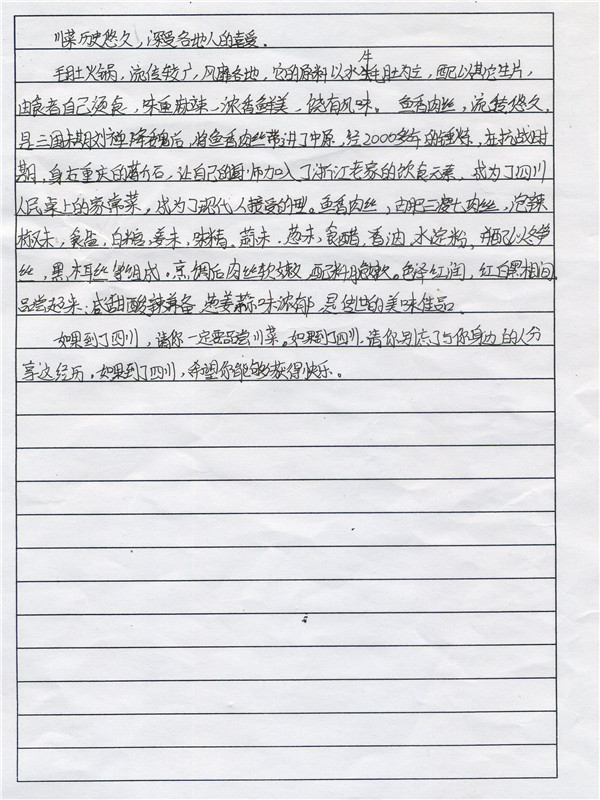 川菜历史悠久，深受各地人的喜爱。
毛肚火锅，流传较广，风靡各地，它的原料以水牛毛肚为主，配以其它生片，
由食者自己烫食，味重麻辣，浓香鲜美，饶有风味。鱼香肉丝，流传悠久，
是三国末期刘禅降魏后，将鱼香肉丝带进了中原，经2000多年的锤炼，在抗战时
期，身在重庆的蒋介石，让自己的厨师加入了浙江老家的饮食元素，成为了四川
人民桌上的家常菜。成为了现代人接受的型。鱼香肉丝，由肥三瘦七肉丝，泡辣
椒末，食盐，白糖，姜末，味精，蒜末，葱末，食醋，香油，水淀粉，并配以冬笋
丝，黑木耳丝等组成。烹调后肉丝软嫩，配料脆嫩。色泽红润，红白黑相间，
品尝起来，咸甜酸辣兼备，葱姜蒜味浓郁，是传世的美味佳品。
如果到了四川，请你一定要品尝川菜。如果到了四川，请你别忘了与你身边的人分
享这经历。如果到了四川，希望你能够获得快乐。